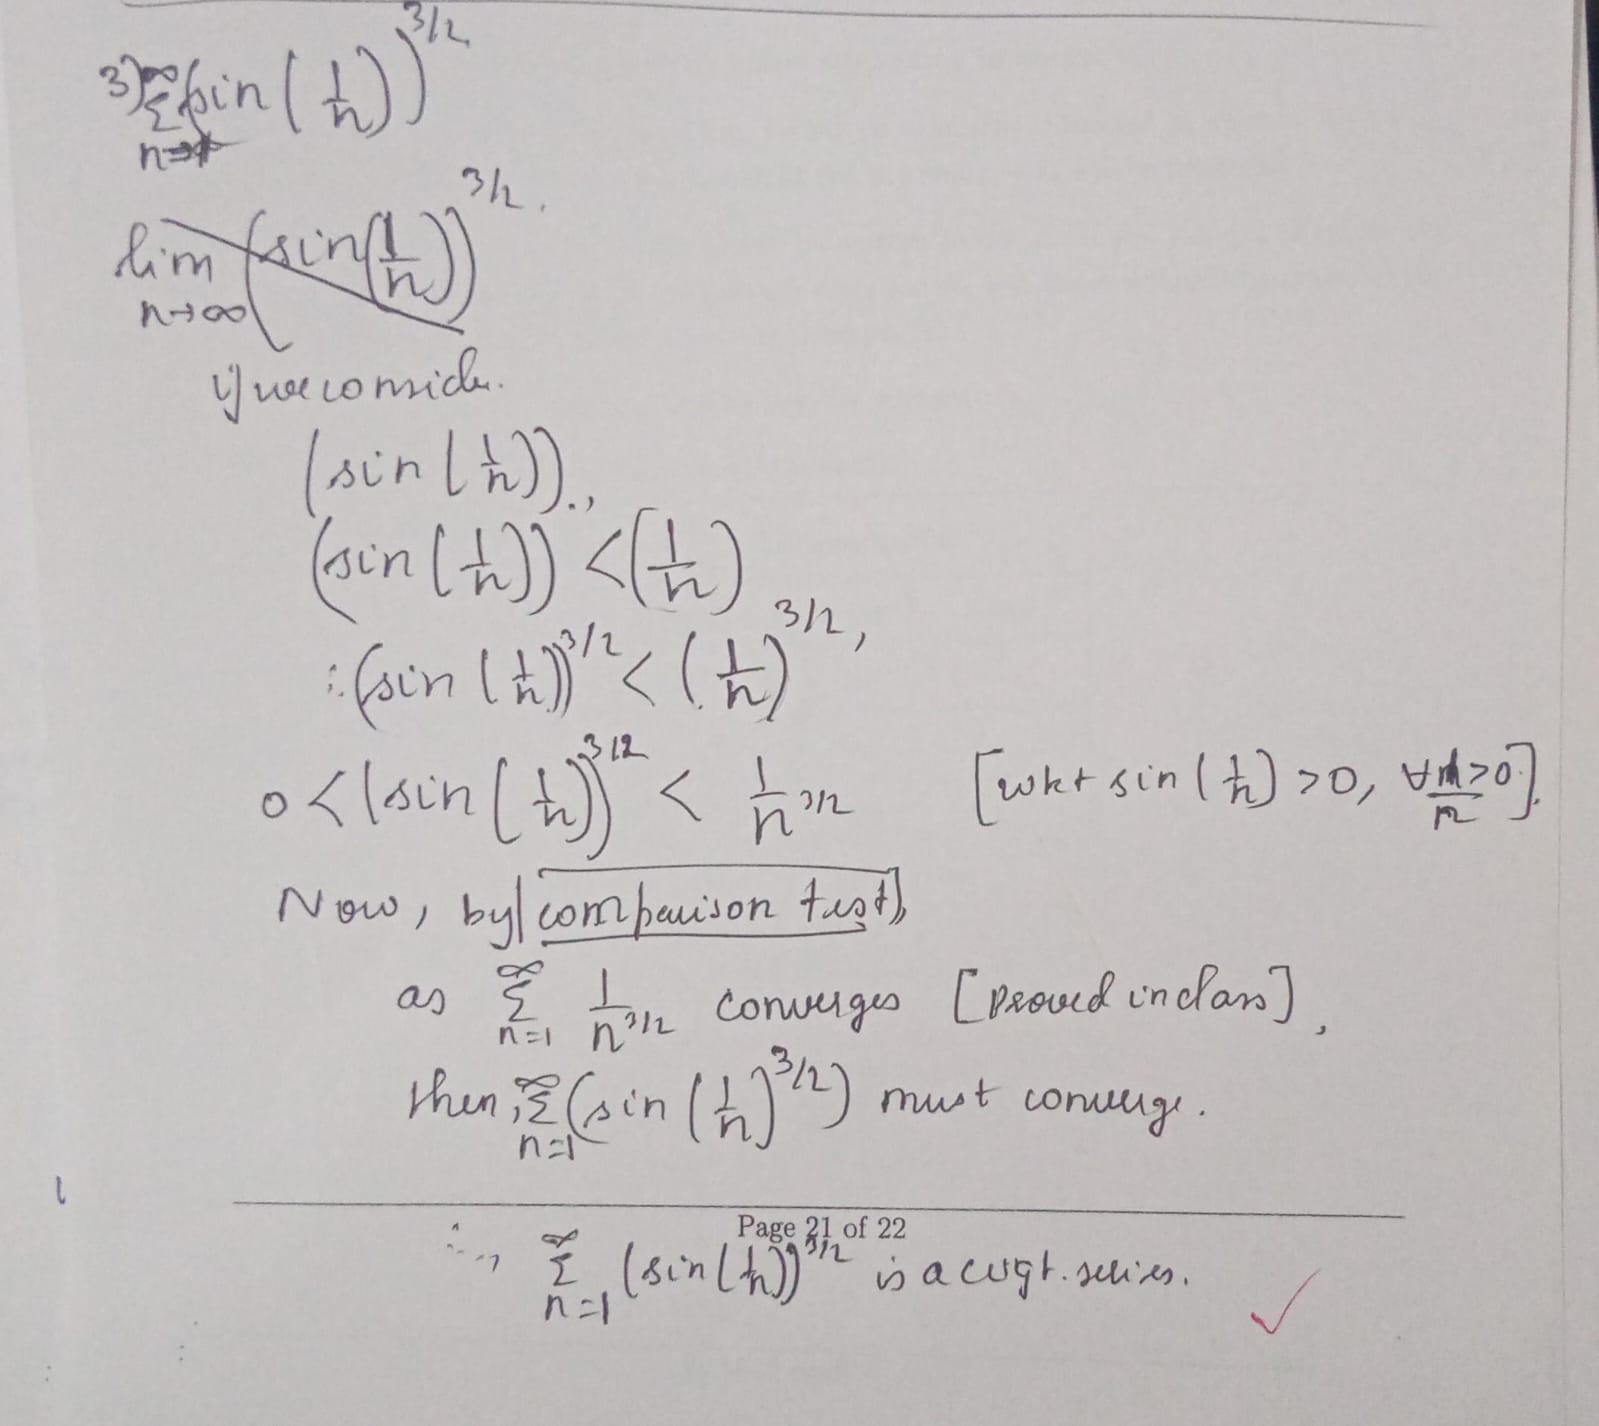 3) ∞ Σ n=1 (sin(1/n))^3/2
lim n→∞ (sin(1/n))^3/2.
if we consider.
(sin(1/n)).,
(sin(1/n)) < (1/n)
∴ (sin(1/n))^3/2 < (1/n)^3/2,
0 < (sin(1/n))^3/2 < 1/n^3/2 [wkt sin(1/n) > 0, ∀ 1/n > 0].
Now, by comparison test),
as ∞ Σ n=1 1/n^3/2 converges [Proved in class],
then, ∞ Σ n=1 (sin(1/n)^3/2) must converge.
Page 21 of 22
∴, ∞ Σ n=1 (sin(1/n))^3/2 is a cvgt. series.